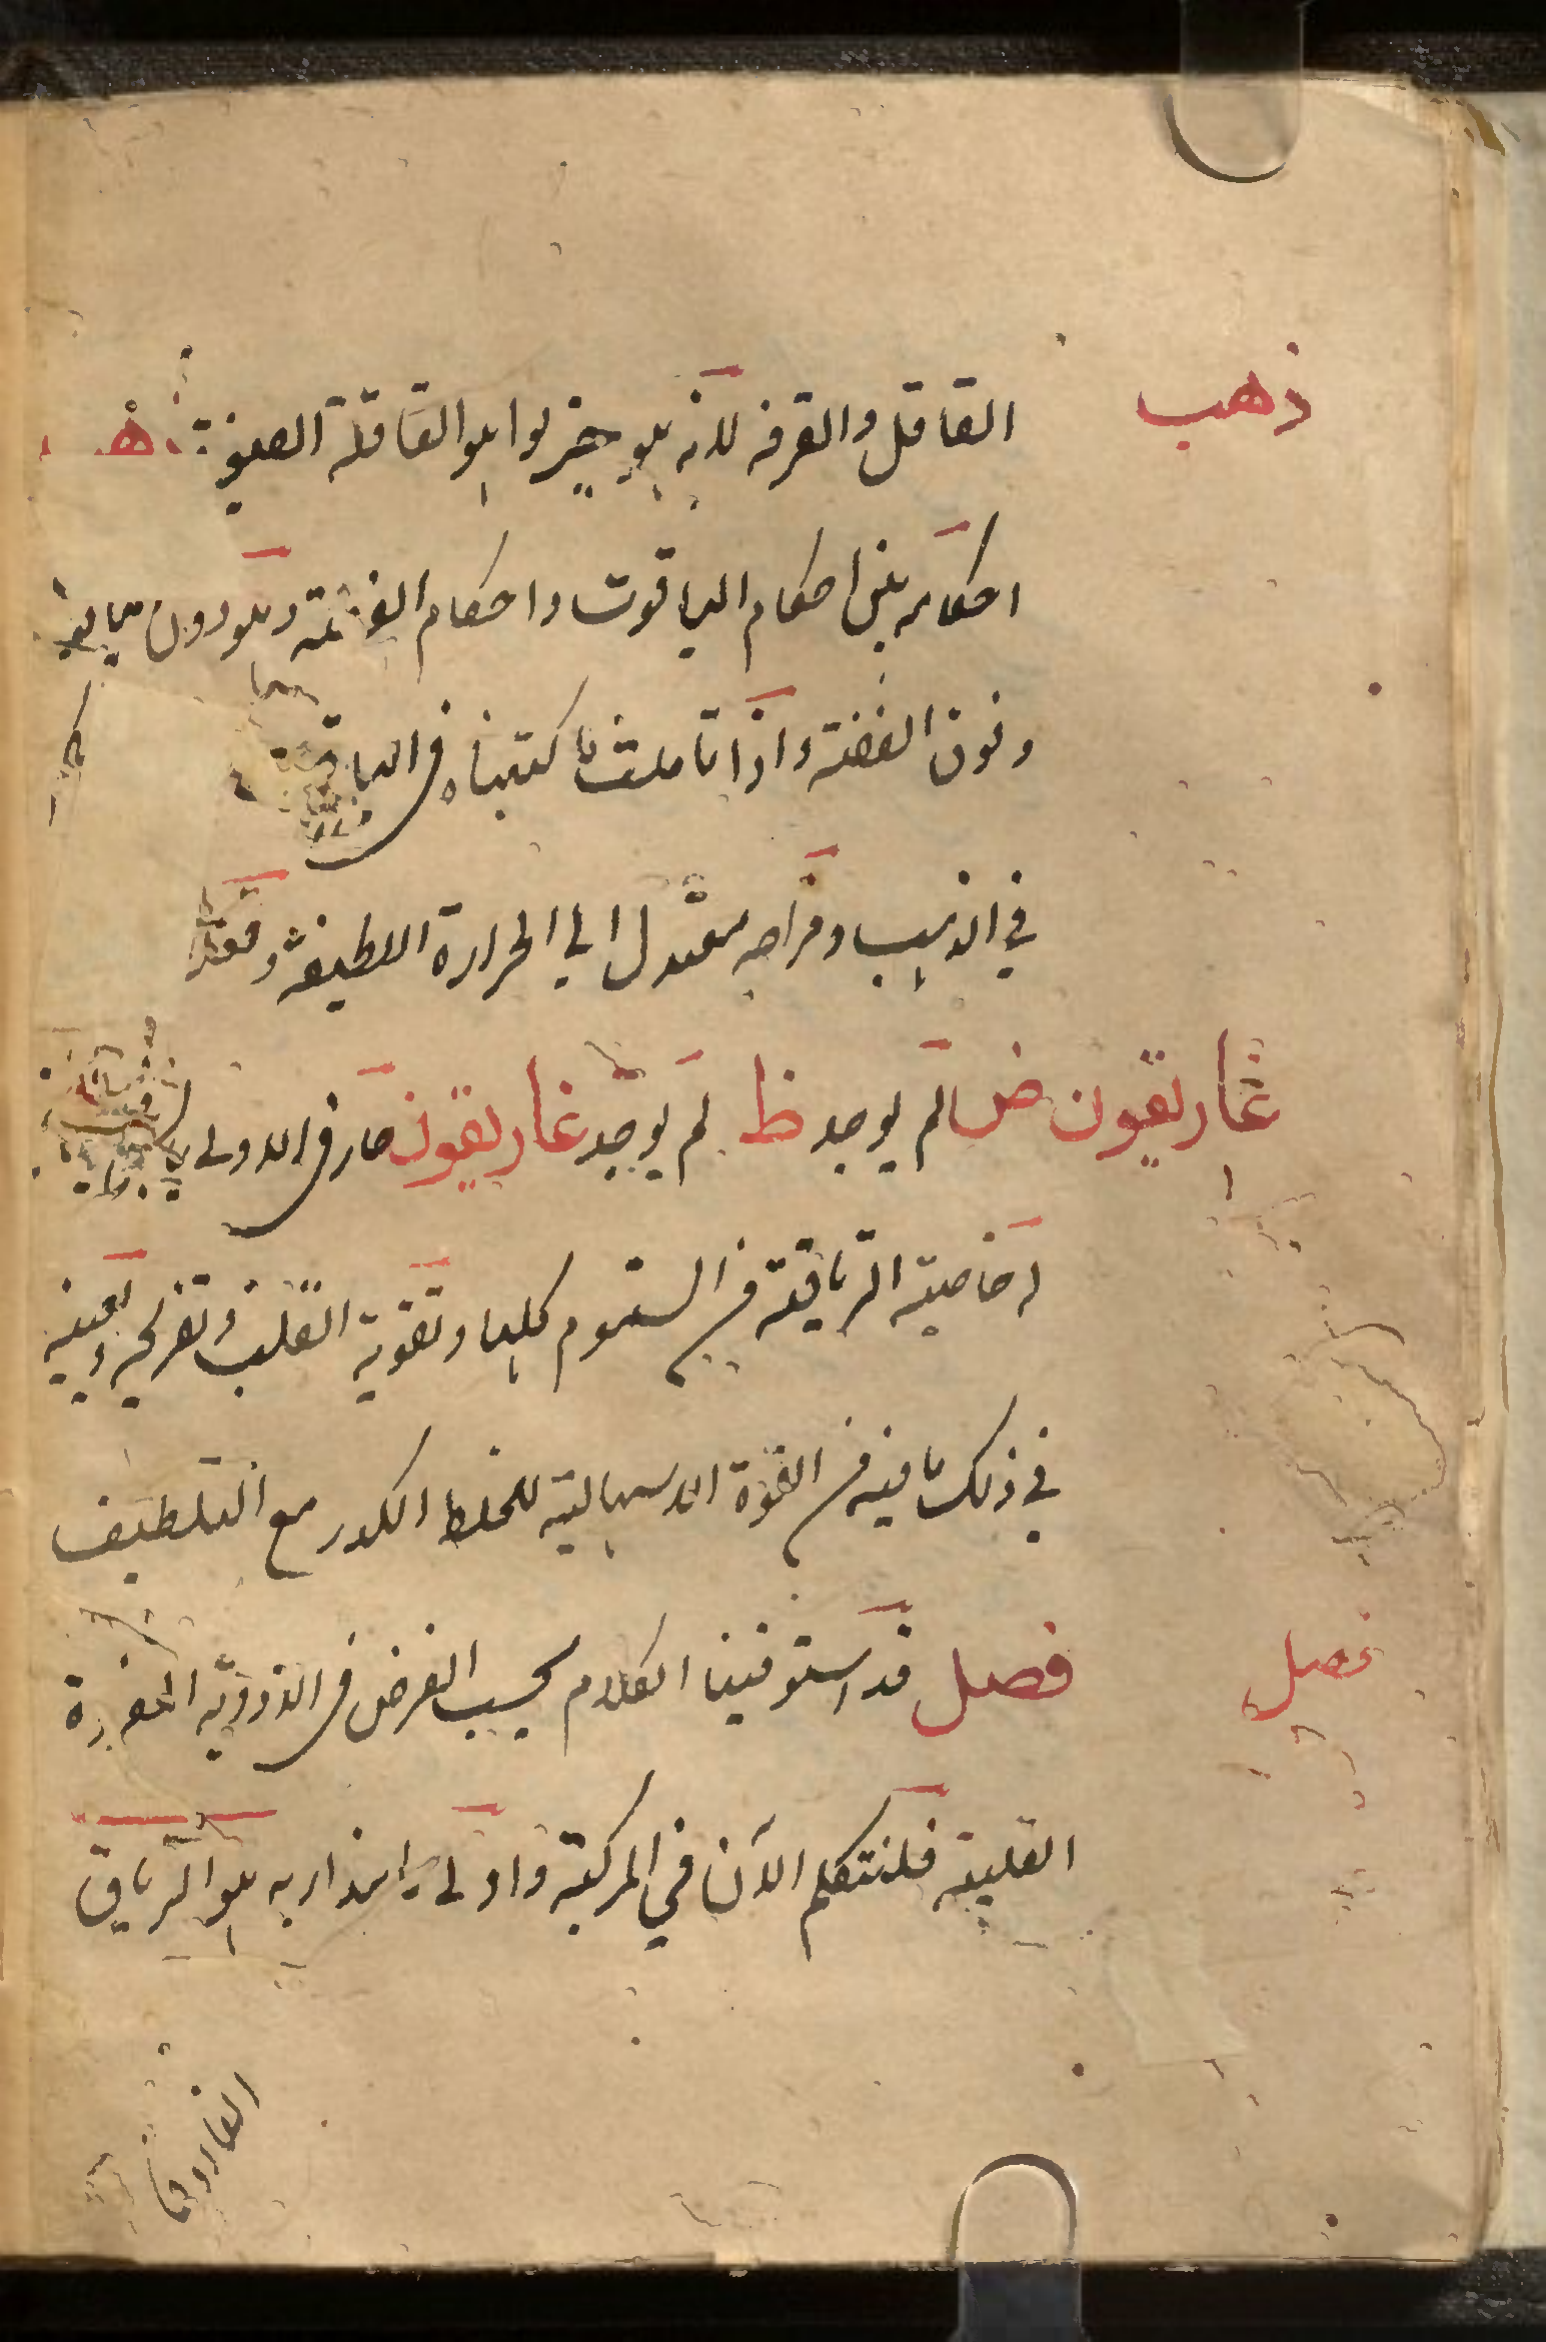 ذهب
القاقل والقرفه لانه هو خيربوا هو القاقلة الصغيرة ذهب
احكامه بين احكام الياقوت واحكام الفضة وهو دون الياقوت
وفوق الفضة واذا تاملت ما كتبناه في الياقوت
في الذهب ومزاجه معتدل الي الحرارة اللطيفة
غاريقون ض لم يوجد ظ لم يوجد غاريقون حار في الاولى
له خاصية الترياقية من السموم كلها وتقوية القلب وتفريحه ويعينه
في ذلك ما فيه من القوة الاسهالية للخلط الكدر مع التلطيف
فصل
فصل قد استوفينا الكلام بحسب الغرض في الادوية المفردة
القلبية فلنتكلم الآن في المركبة واولى ما ابتدا به هو الترياق
الفاروق